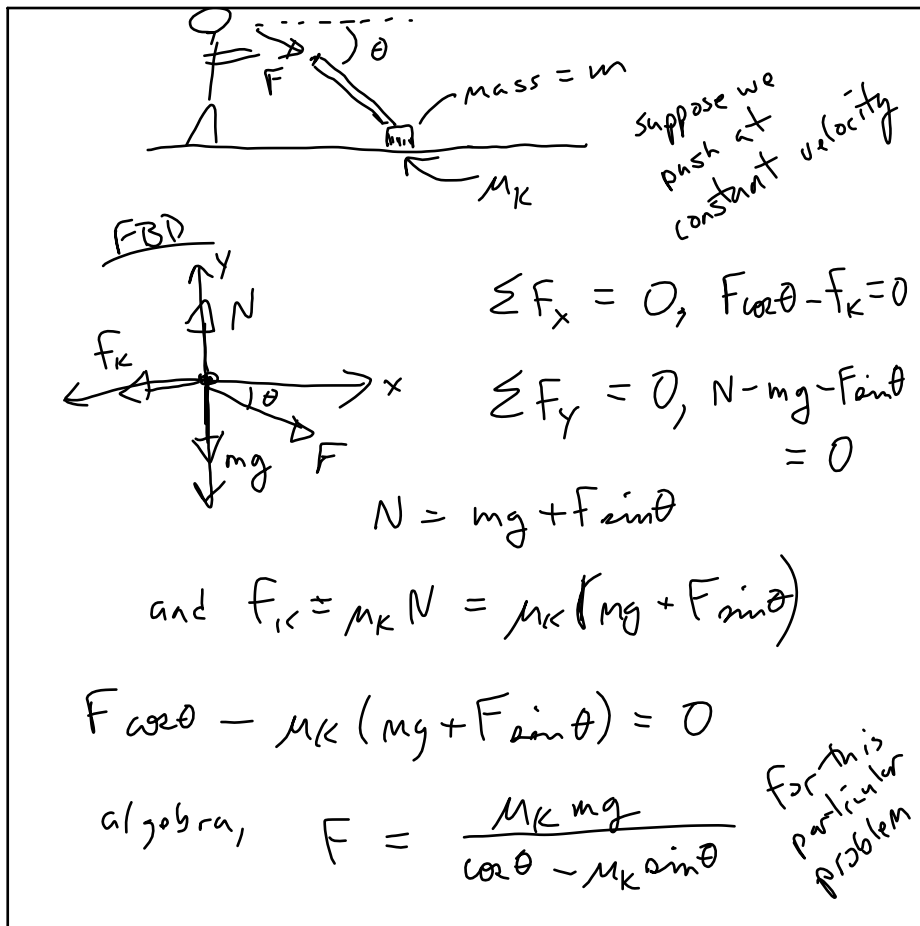 θ
F
mass = m
μK
suppose we
push at
constant velocity
FBD
y
N
fK
θ
x
mg
F
ΣFx = 0, F cosθ - fK = 0
ΣFy = 0, N - mg - F sinθ
= 0
N = mg + F sinθ
and fK = μK N = μK (mg + F sinθ)
F cosθ - μK (mg + F sinθ) = 0
algebra, F = μK mg / cosθ - μK sinθ
for this
particular
problem